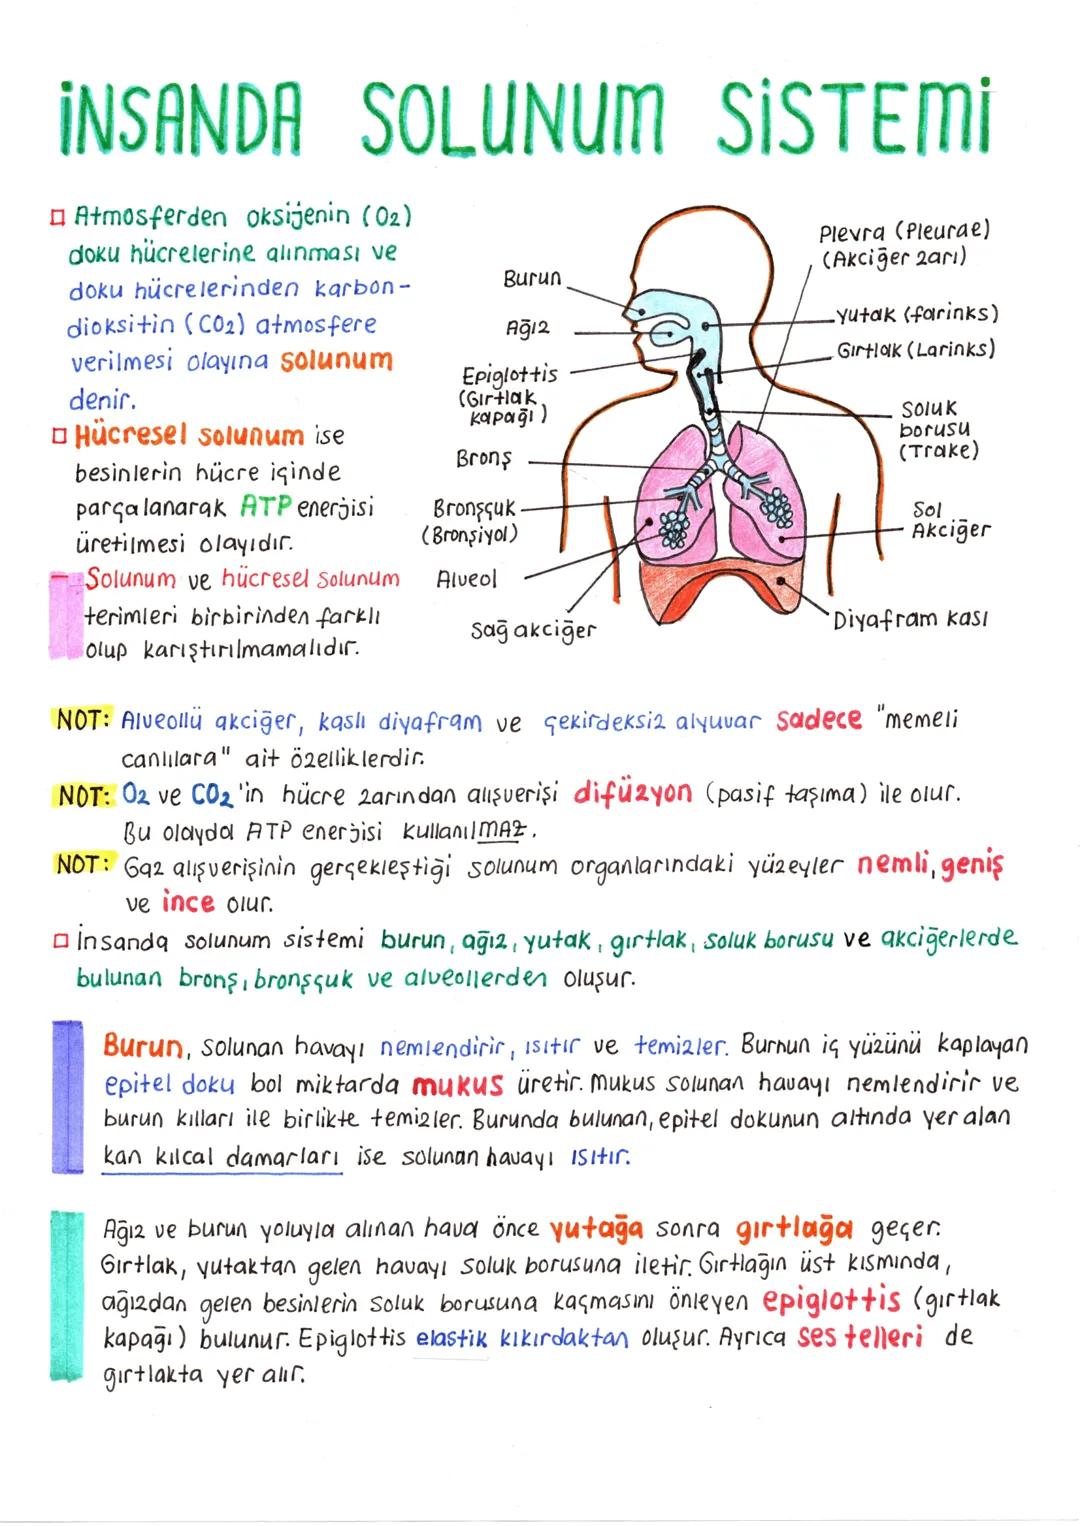 İNSANDA SOLUNUM SİSTEMİ
Atmosferden oksijenin (O2)
doku hücrelerine alınması ve
doku hücrelerinden karbon-
dioksitin (CO2) atmosfere
verilmesi olayına solunum
denir.
Hücresel solunum ise
besinlerin hücre içinde
parçalanarak ATP enerjisi
üretilmesi olayıdır.
Solunum ve hücresel solunum
terimleri birbirinden farklı
olup karıştırılmamalıdır.
Burun
Ağız
Epiglottis
(Gırtlak
kapağı)
Bronş
Bronşçuk
(Bronşiyol)
Alveol
Sağ akciğer
Plevra (Pleurae)
(Akciğer zarı)
Yutak (farinks)
Gırtlak (Larinks)
Soluk
borusu
(Trake)
Sol
Akciğer
Diyafram kası
NOT: Alveollü akciğer, kaslı diyafram ve çekirdeksiz alyuvar sadece "memeli
canlılara" ait özelliklerdir.
NOT: O2 ve CO2'in hücre zarından alışverişi difüzyon (pasif taşıma) ile olur.
Bu olayda ATP enerjisi kullanılMAZ.
NOT: Gaz alışverişinin gerçekleştiği solunum organlarındaki yüzeyler nemli, geniş
ve ince olur.
İnsanda solunum sistemi burun, ağız, yutak, gırtlak, soluk borusu ve akciğerlerde
bulunan bronş, bronşçuk ve alveollerden oluşur.
Burun, solunan havayı nemlendirir, ısıtır ve temizler. Burnun iç yüzünü kaplayan
epitel doku bol miktarda mukus üretir. Mukus solunan havayı nemlendirir ve
burun kılları ile birlikte temizler. Burunda bulunan, epitel dokunun altında yer alan
kan kılcal damarları ise solunan havayı ısıtır.
Ağız ve burun yoluyla alınan hava önce yutağa sonra gırtlağa geçer.
Gırtlak, yutaktan gelen havayı soluk borusuna iletir. Gırtlağın üst kısmında,
ağızdan gelen besinlerin soluk borusuna kaçmasını önleyen epiglottis (gırtlak
kapağı) bulunur. Epiglottis elastik kıkırdaktan oluşur. Ayrıca ses telleri de
gırtlakta yer alır.